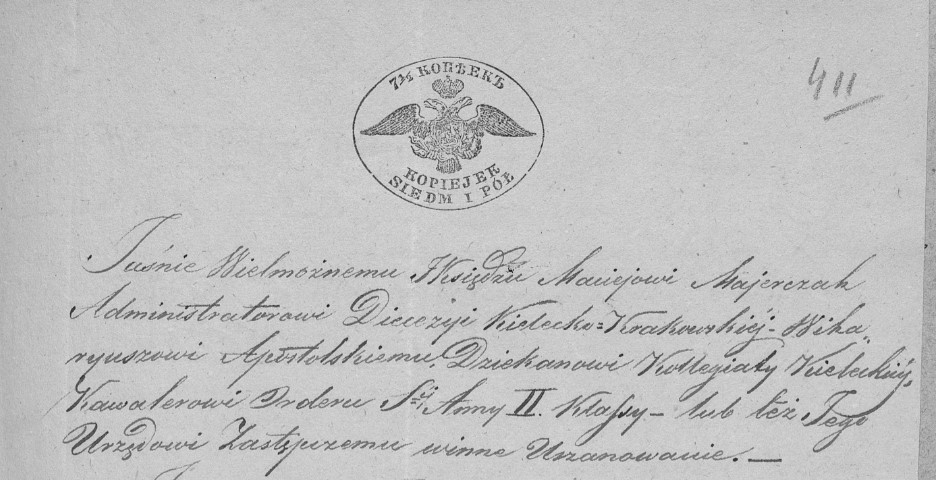 411
7½ КОПѢЕКЪ
KOPIEJEK
SIEDM I PÓŁ
Jaśnie Wielmożnemu JKsiędzu Maciejowi Majerczak
Administratorowi Diecezyi Kielecko=Krakowskiéj - Wika„
ryuszowi Apostolskiemu, Dziekanowi Kollegiaty Kieleckiéj,
Kawalerowi Orderu Stéj Anny II. Klassy - lub téż Jego
Urzędowi Zastępczemu winne Uszanowanie. —